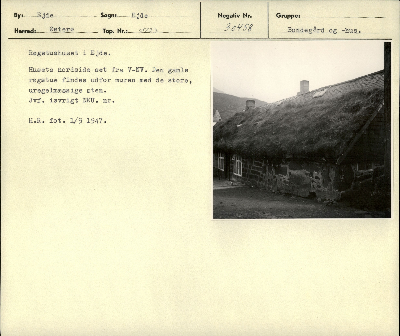 By: Ejde Sogn: Ejde Negativ Nr. Gruppe:
Herred: Østerø Top. Nr.: 30458 Bondegård og -hus.
Røgstuehuset i Ejde.
Husets nordside set fra V-NV. Den gamle
røgstue findes udfor muren med de store,
uregelmæssige sten.
Jvf. iøvrigt NEU. nr.
H.R. fot. 1/9 1947.